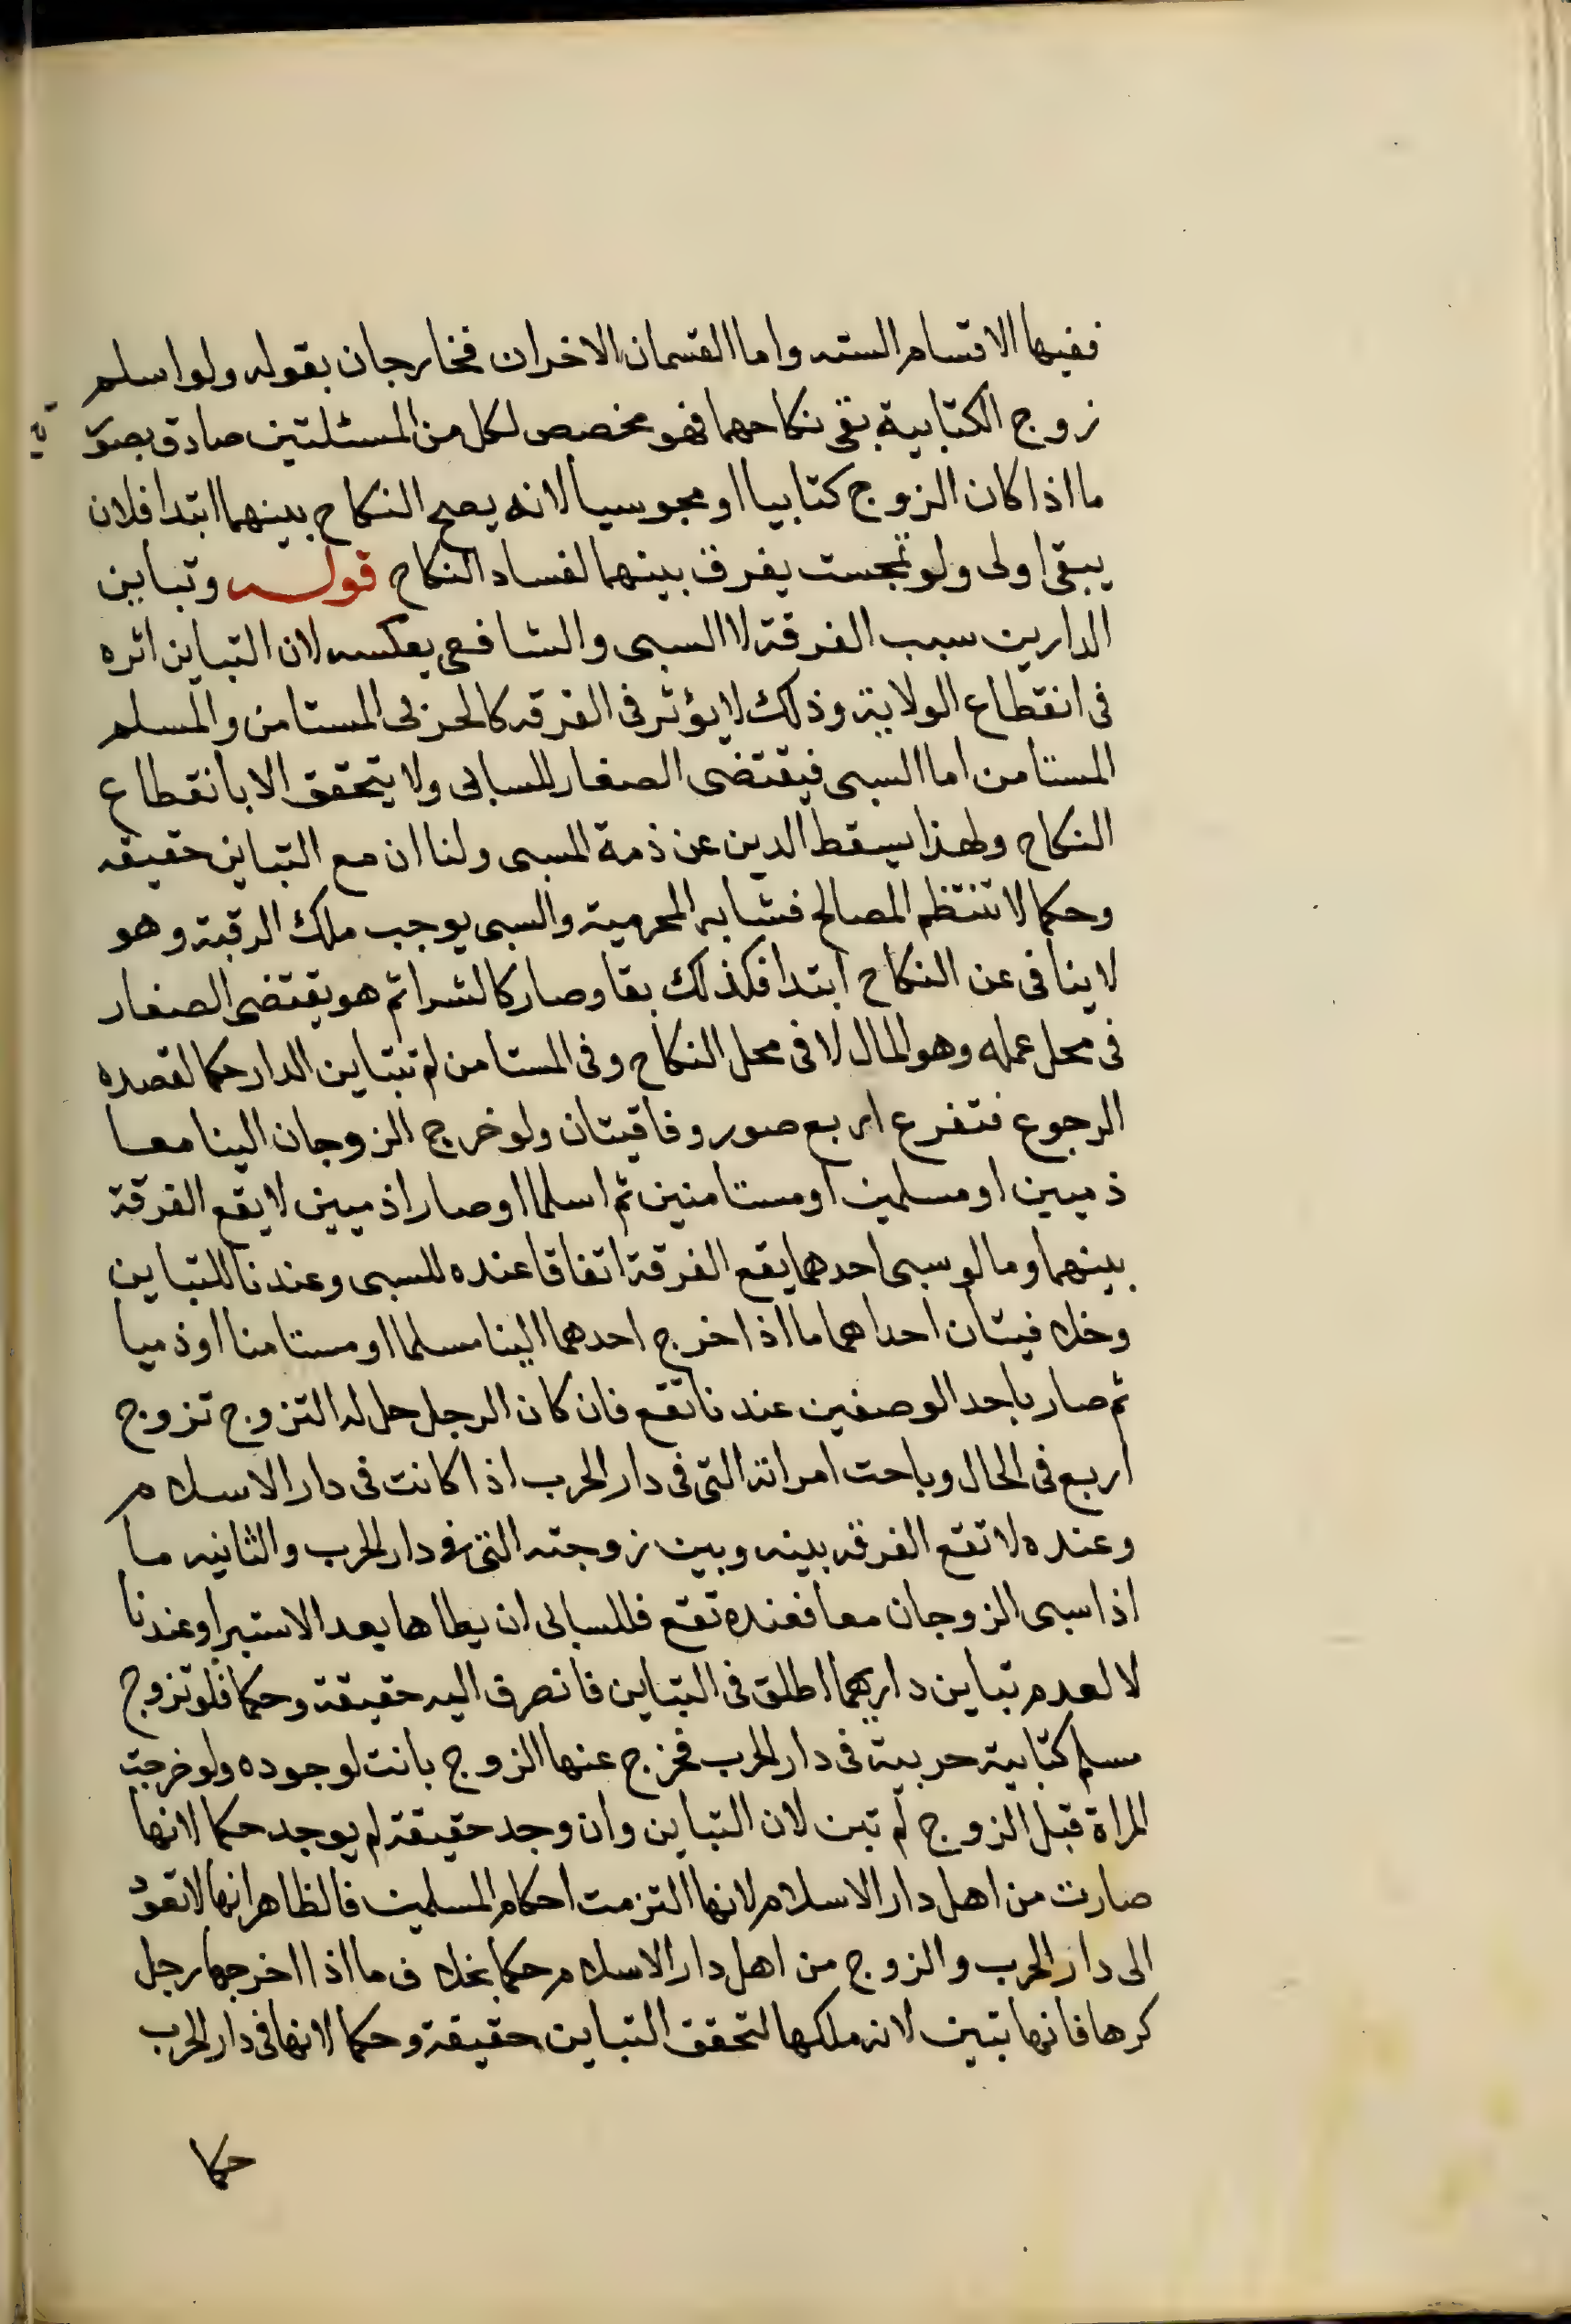 ففيها الاقسام الستة واما القسمان الاخران فخارجان بقوله ولو اسلم
زوج الكتابية بقى نكاحهما فهو مخصص لكل من المسئلتين صادق بصو
ية
ما اذا كان الزوج كتابيا او مجوسيا لانه يصح النكاح بينهما ابتدا فلان
يبقى اولى ولو تمجست يفرق بينهما لفساد النكاح قوله وتباين
الدارين سبب الفرقة لا السبى والشافعى يعكسه لان التباين اثره
فى انقطاع الولاية وذلك لا يؤثر فى الفرقه كالحربى المستامن والمسلم
المستامن اما السبى فيقتضى الصفار للسابى ولا يتحقق الا بانقطاع
النكاح ولهذا يسقط الدين عن ذمة المسبى ولنا ان مع التباين حقيقه
وحكما لا تنتظم المصالح فشابه المحرمية والسبى يوجب ملك الرقبة وهو
لا ينافى عن النكاح ابتدا فكذلك بقا وصار كالشرا ثم هو يقتضى الصفار
فى محل عمله وهو المال لا فى محل النكاح وفى المستامن لم تتباين الدار حكما لقصده
الرجوع فتفرع اربع صور وفاقيتان ولو خرج الزوجان الينا معا
ذميين او مسلمين او مستامنين ثم اسلما او صارا ذميين لا يقع الفرقة
بينهما وما لو سبى احدهما يقع الفرقة اتفاقا عنده للسبى وعندنا للتباين
وخلافيتان احداهما ما اذا خرج احدهما الينا مسلما او مستامنا او ذميا
ثم صار باحد الوصفين عندنا تقع فان كان الرجل حل له التزوج تزوج
اربع فى الحال وباحت امراته التى فى دار الحرب اذا كانت فى دار الاسلام
وعنده لا تقع الفرقه بينه وبين زوجته التى فى دار الحرب والثانيه ما
اذا سبى الزوجان معا فعنده تقع فللسابى ان يطاها بعد الاستبرا وعندنا
لا لعدم تباين داريهما اطلق فى التباين فانصرف اليه حقيقة وحكما فلو تزوج
مسلم كتابية حربية فى دار الحرب فخرج عنها الزوج بانت لوجوده ولو خرجت
المراة قبل الزوج لم تبن لان التباين وان وجد حقيقة لم يوجد حكما لانها
صارت من اهل دار الاسلام لانها التزمت احكام المسلمين فالظاهر انها لا تعود
الى دار الحرب والزوج من اهل دار الاسلام حكما بخلاف ما اذا اخرجها رجل
كرها فانها تبين لانه ملكها لتحقق التباين حقيقة وحكما لانها فى دار الحرب
حكما